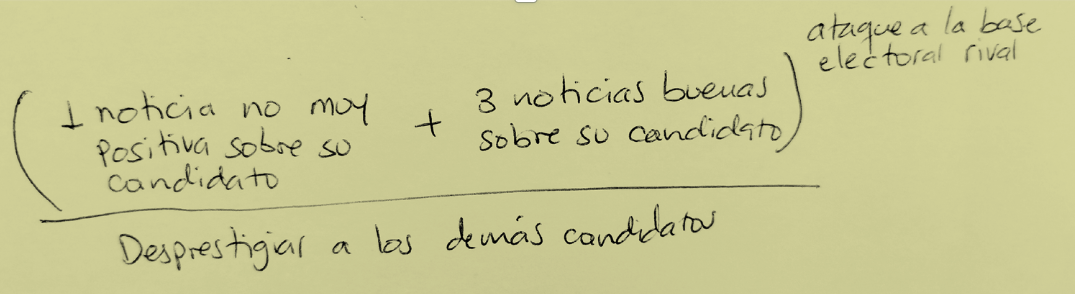 ataque a la base
electoral rival
(1 noticia no muy
positiva sobre su
candidato
+
3 noticias buenas
sobre su candidato)
Desprestigiar a los demás candidatos